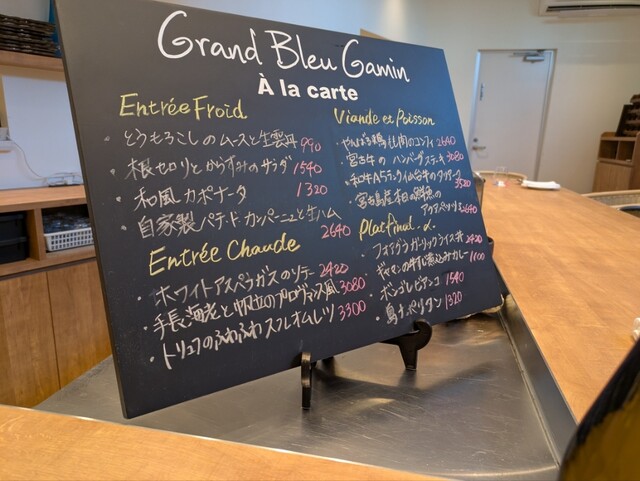 Grand Bleu Gamin
À la carte
Entrée Froid
・とうもろこしのムースと生雲丹 990
・根セロリとからすみのサラダ 1540
・和風カポナータ 1320
・自家製パテ・ド・カンパーニュと生ハム
2640
Entrée Chaude
・ホワイトアスペラガスのソテー 2420
・手長海老と帆立のプロヴァンス風 3080
・トリュフのふわふわスフレオムレツ 3300
Viande et Poisson
・やんばる鶏モモ肉のコンフィ 2640
・宮古牛のハンバーグステーキ 3080
・和牛A5ランク仙台牛のタリアータ 3520
・宮古島産本日の鮮魚の
アクアパッツァ 2640
Plat final
・フォアグラガーリックライス丼 2420
・ギャマンの牛すじ煮込みカレー 1100
・ボンゴレビアンコ 1540
・島ナポリタン 1320